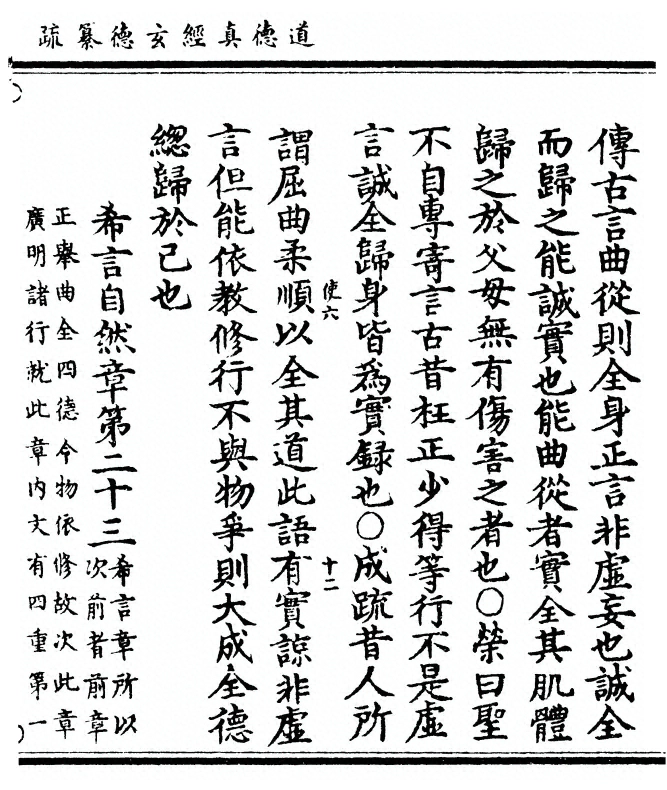 道德真經玄德纂疏
傳古言曲從則全身正言非虛妄也誠全
而歸之能誠實也能曲從者實全其肌體
歸之於父母無有傷害之者也○榮曰聖
不自專寄言古昔枉正少得等行不是虛
言誠全歸身皆爲實録也○成疏昔人所
使六 十二
謂屈曲柔順以全其道此語有實諒非虛
言但能依教修行不與物爭則大成全德
總歸於己也
希言自然章第二十三希言章所以
次前者前章
正舉曲全四德令物依修故次此章
廣明諸行就此章內文有四重第一